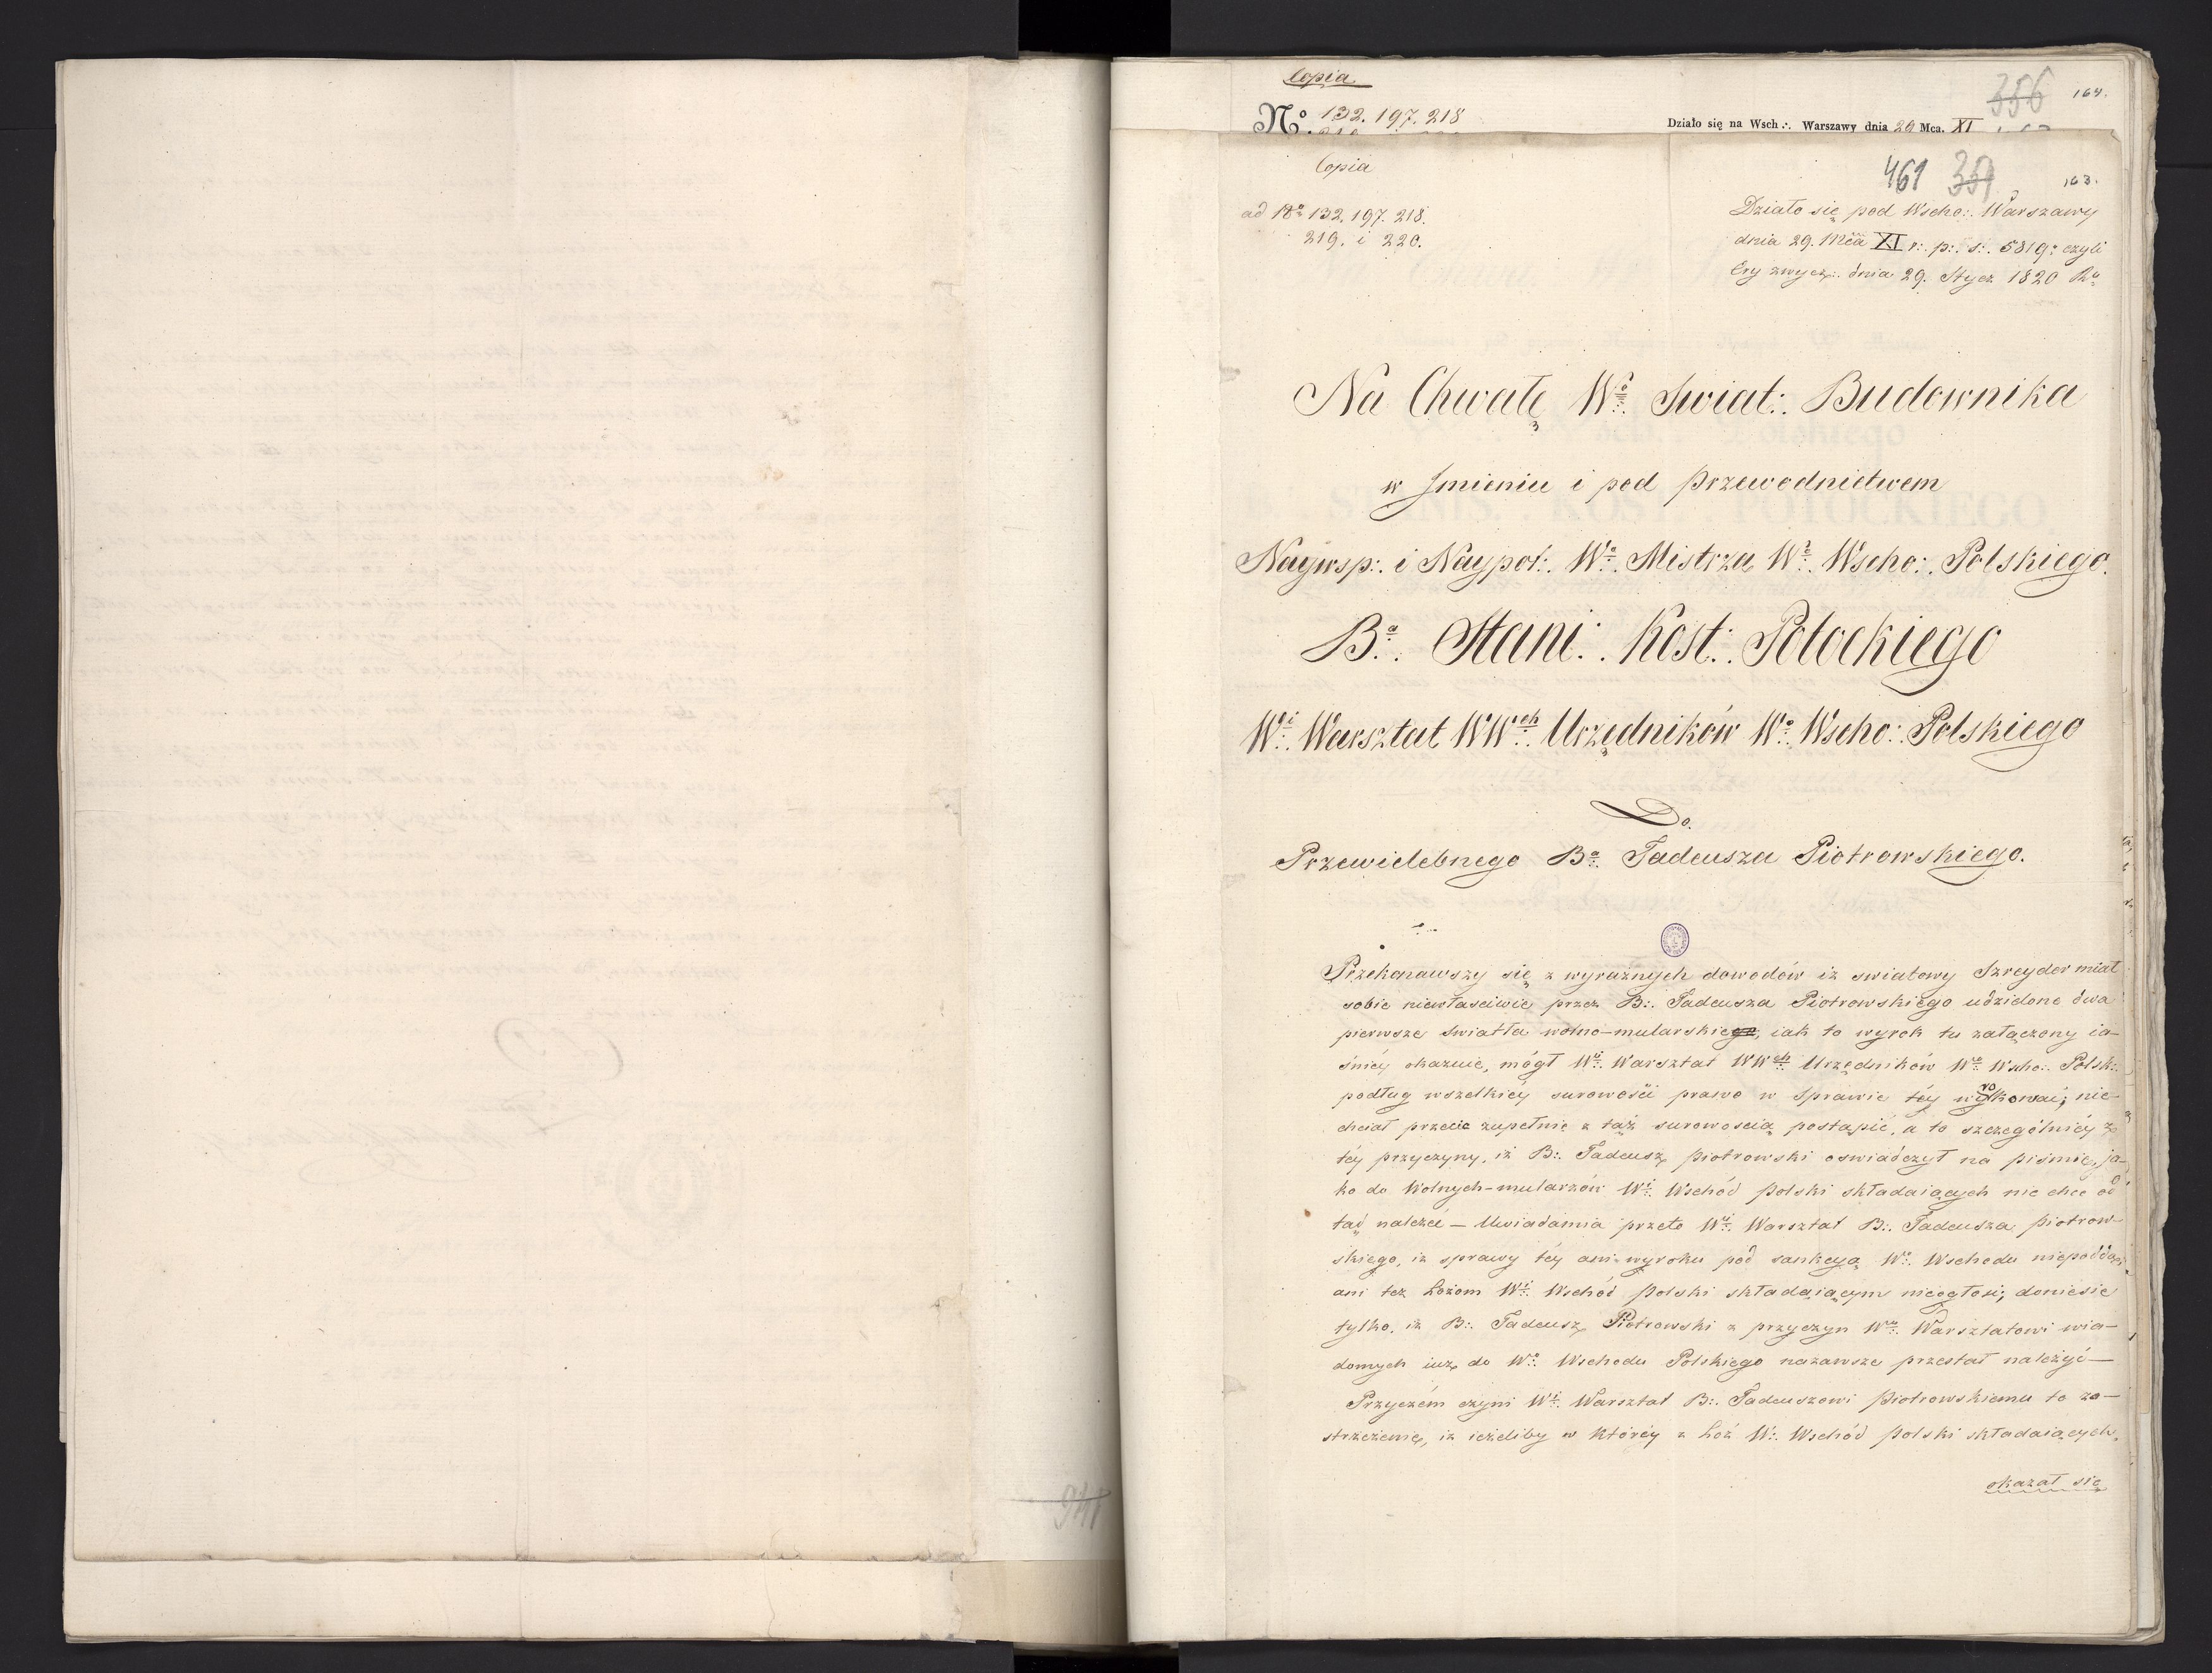 Copia
356 164.
No. 132. 197. 218
Działo się na Wsch∴ Warszawy dnia 29 Mca. XI
Copia
461 351 163.
ad No 132. 197. 218.
219. i 220.
Działo się pod Wscho∴ Warszawy
dnia 29. Mca XI r∴ p∴ s∴ 5819o czyli
Ery zwycz∴ dnia 29. Stycz 1820 Ru
Na Chwałę Wo∴ Swiat∴ Budownika
w Jmieniu i pod Przewodnictwem
Naywsp∴ i Naypoł∴ Wo∴ Mistrza Wo∴ Wscho∴ Polskiego.
Ba∴ Stani∴ Kost∴ Potockiego
Wi∴ Warsztat WWch∴ Urzędników Wo∴ Wscho∴ Polskiego
Do.
Przewielebnego Ba∴ Tadeusza Piotrowskiego.
Przekonawszy się z wyraznych dowodów iz swiatowy Szreyder miał
sobie niewłasciwie przez B∴ Tadeusza Piotrowskiego udzielone dwa
pierwsze swiatła wolno-mularskiego, iak to wyrok tu załączony ia-
śniéy okazuie, mógł Wi∴ Warsztat WWch∴ Urzędników Wo∴ Wscho∴ Polsk∴
podług wszelkiéy surowości prawa w sprawie téy wyrokować; nie
chciał przecie zupełnie z taż surowoscią postąpić, a to szczególniéy z
téy przyczyny, iż B∴ Tadeusz Piotrowski oswiadczył na pismie, ja-
ko do Wolnych-mularzów Wi∴ Wschód Polski składaiących nie chce od
tąd należeć — Uwiadamia przeto Wi∴ Warsztat B∴ Tadeusza Piotrow-
skiego, iz sprawy téy ani wyroku pod sankcyą Wo∴ Wschodu niepodda,
ani tez Lożom Wi∴ Wschód Polski składaiącym nieogłosi; doniesie
tylko, iz B∴ Tadeusz Piotrowski z przyczyn Wu∴ Warsztatowi wia-
domych iuż do Wo∴ Wschodu Polskiego nazawsze przestał należyć —
Przyczém czyni Wi∴ Warsztat B∴ Tadeuszowi Piotrowskiemu to za-
strzeżenie, iz ieżeliby w któréy z Lóż W∴ Wschód Polski składaiących,
okazał się
146